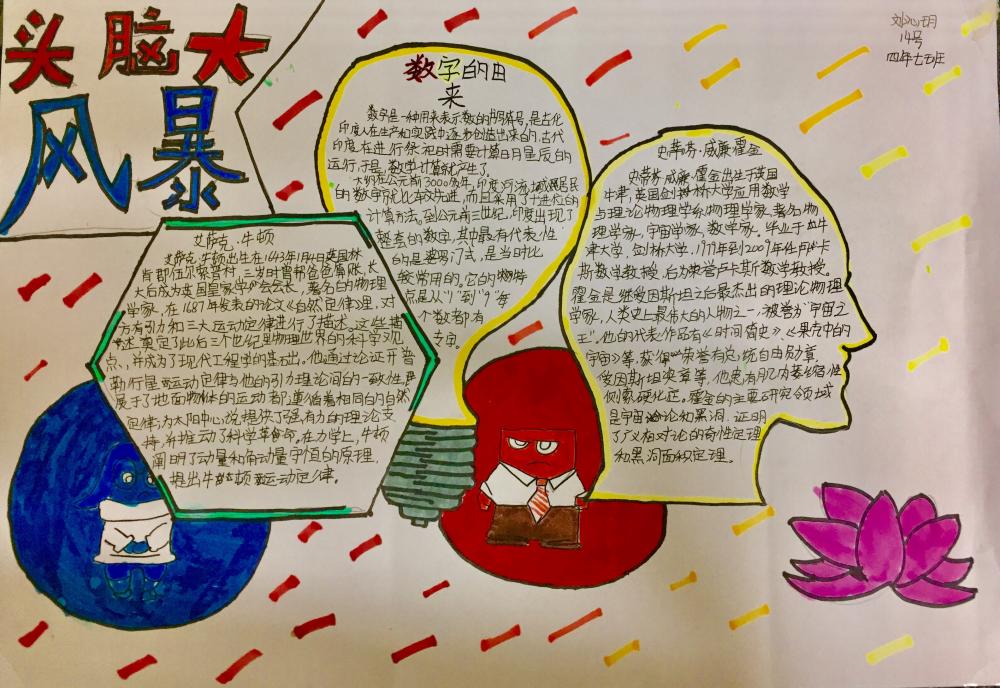 头脑大
风暴
刘心玥
14号
四年七五班
数字的由
来
数字是一种用来表示数的书写符号,是古代
印度人在生产和实践中逐步创造出来的。古代
印度在进行祭祀时需要计算日月星辰的
运行,于是,数学计算就产生了。
大约在公元前3000多年,印度河流域居民
的数字就比较先进,而且采用了十进位的
计算方法。到公元前三世纪,印度出现了
整套的数字,其中最有代表性
的是婆罗门式,是当时比
较常用的。它的特
点是从"1"到"9"每
个数都有
专字。
艾萨克·牛顿
艾萨克·牛顿出生在1643年1月4日英国林
肯郡伍尔索普村,三岁时
大后成为英国皇家学会会长,著名的物理
学家,在1687年发表的论文《自然定律》里,对
万有引力和三大运动定律进行了描述。这些描
述奠定了此后三个世纪里物理世界的科学观
点,并成为了现代工程学的基础。他通过论证开普
勒行星运动定律与他的引力理论间的一致性,
展于了地面物体的运动都遵循着相同的自然
定律;为太阳中心说提供了强有力的理论支
持,并推动了科学革命。在力学上,牛顿
阐明了动量和角动量守恒的原理,
提出牛顿运动定律。
史蒂芬·威廉霍金
史蒂芬·威廉·霍金出生于英国
牛津,英国剑桥大学应用数学
与理论物理学系物理学家,著名物
理学家,宇宙学家,数学家。毕业于牛
津大学,剑桥大学,1979年到2009年任卢卡
斯数学教授,后为荣誉卢卡斯数学教授。
霍金是继爱因斯坦之后最杰出的理论物理
学家,人类史上最伟大的人物之一,被誉为"宇宙之
王"。他的代表作品有《时间简史》、《果壳中的
宇宙》等,获得荣誉有总统自由勋章,
爱因斯坦奖章等,他患有肌肉萎缩性
侧索硬化症。霍金的主要研究领域
是宇宙论和黑洞,证明
了广义相对论的奇性定理
和黑洞面积定理。